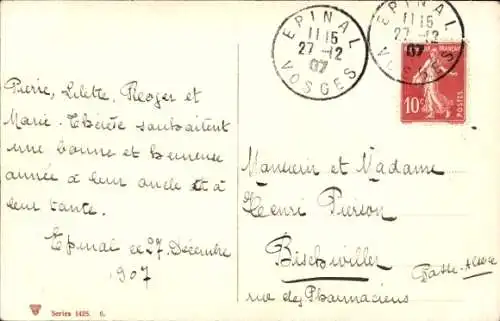 Pierre, Lilette, Roger et
Marie-Thérèse souhaitent
une bonne et heureuse
année à leur oncle et à
leur tante.
Epinal ce 27 Décembre
1907
EPINAL
11 15
27 -12
07
VOSGES
EPINAL
11 15
27 -12
07
VOSGES
10c
POSTES
Monsieur et Madame
Henri Pierson
Bischwiller
Basse-Alsace
rue des Pharmaciens
Series 1425. 6.